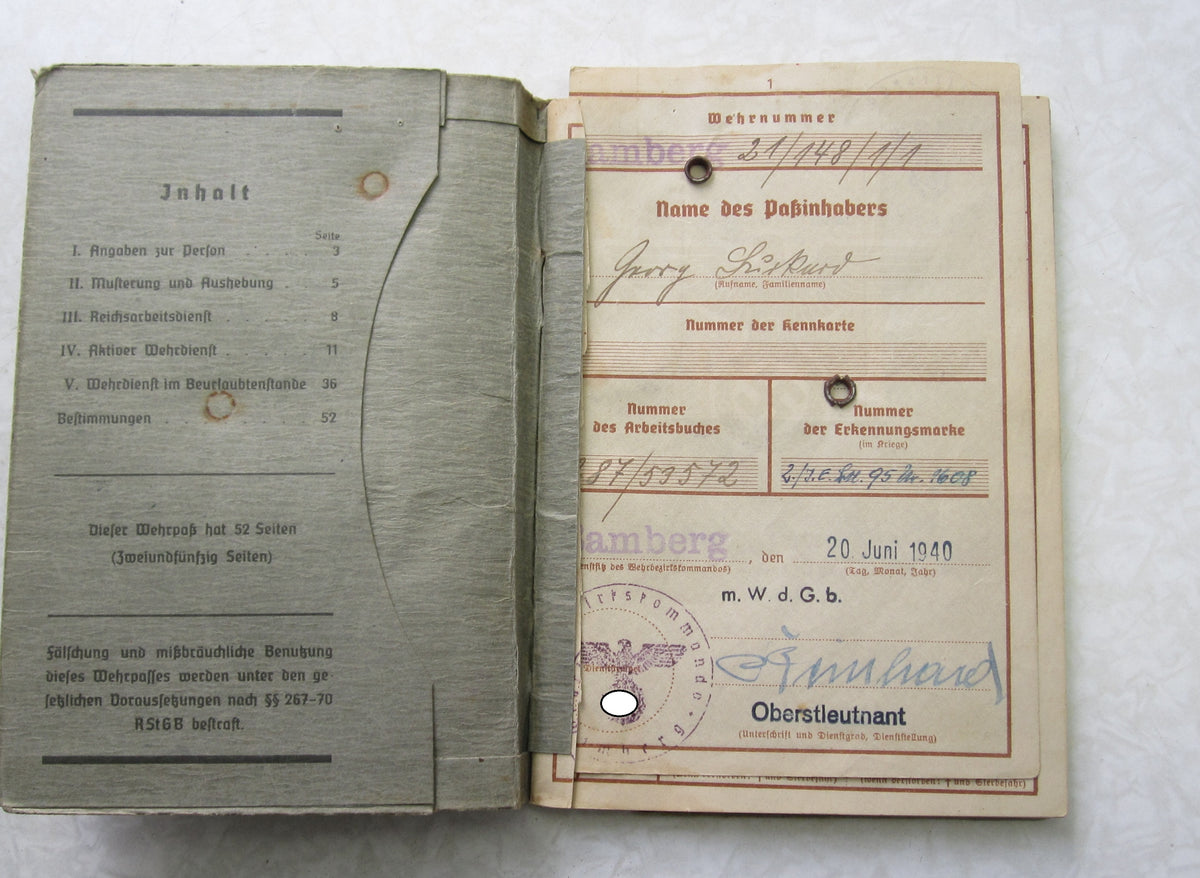 Inhalt
Seite
I. Angaben zur Person . . . . . 3
II. Musterung und Aushebung . . 5
III. Reichsarbeitsdienst . . . . . 8
IV. Aktiver Wehrdienst . . . . . 11
V. Wehrdienst im Beurlaubtenstande 36
Bestimmungen . . . . . 52
Dieser Wehrpaß hat 52 Seiten
(Zweiundfünfzig Seiten)
Fälschung und mißbräuchliche Benutzung
dieses Wehrpasses werden unter den ge-
setzlichen Voraussetzungen nach §§ 267-70
RStGB bestraft.
1
Wehrnummer
amberg 21/148/1/1
Name des Paßinhabers
Georg
(Rufname, Familienname)
Nummer der Kennkarte
Nummer
des Arbeitsbuches
87/53572
Nummer
der Erkennungsmarke
(im Kriege)
95 Nr. 1608
amberg, den 20. Juni 1940
des Wehrbezirkskommandos) (Tag, Monat, Jahr)
m. W. d. G. b.
Dienststempel
Oberstleutnant
(Unterschrift und Dienstgrad, Dienststellung)
und Sterbejahr) (wenn verstorben: † und Sterbejahr)